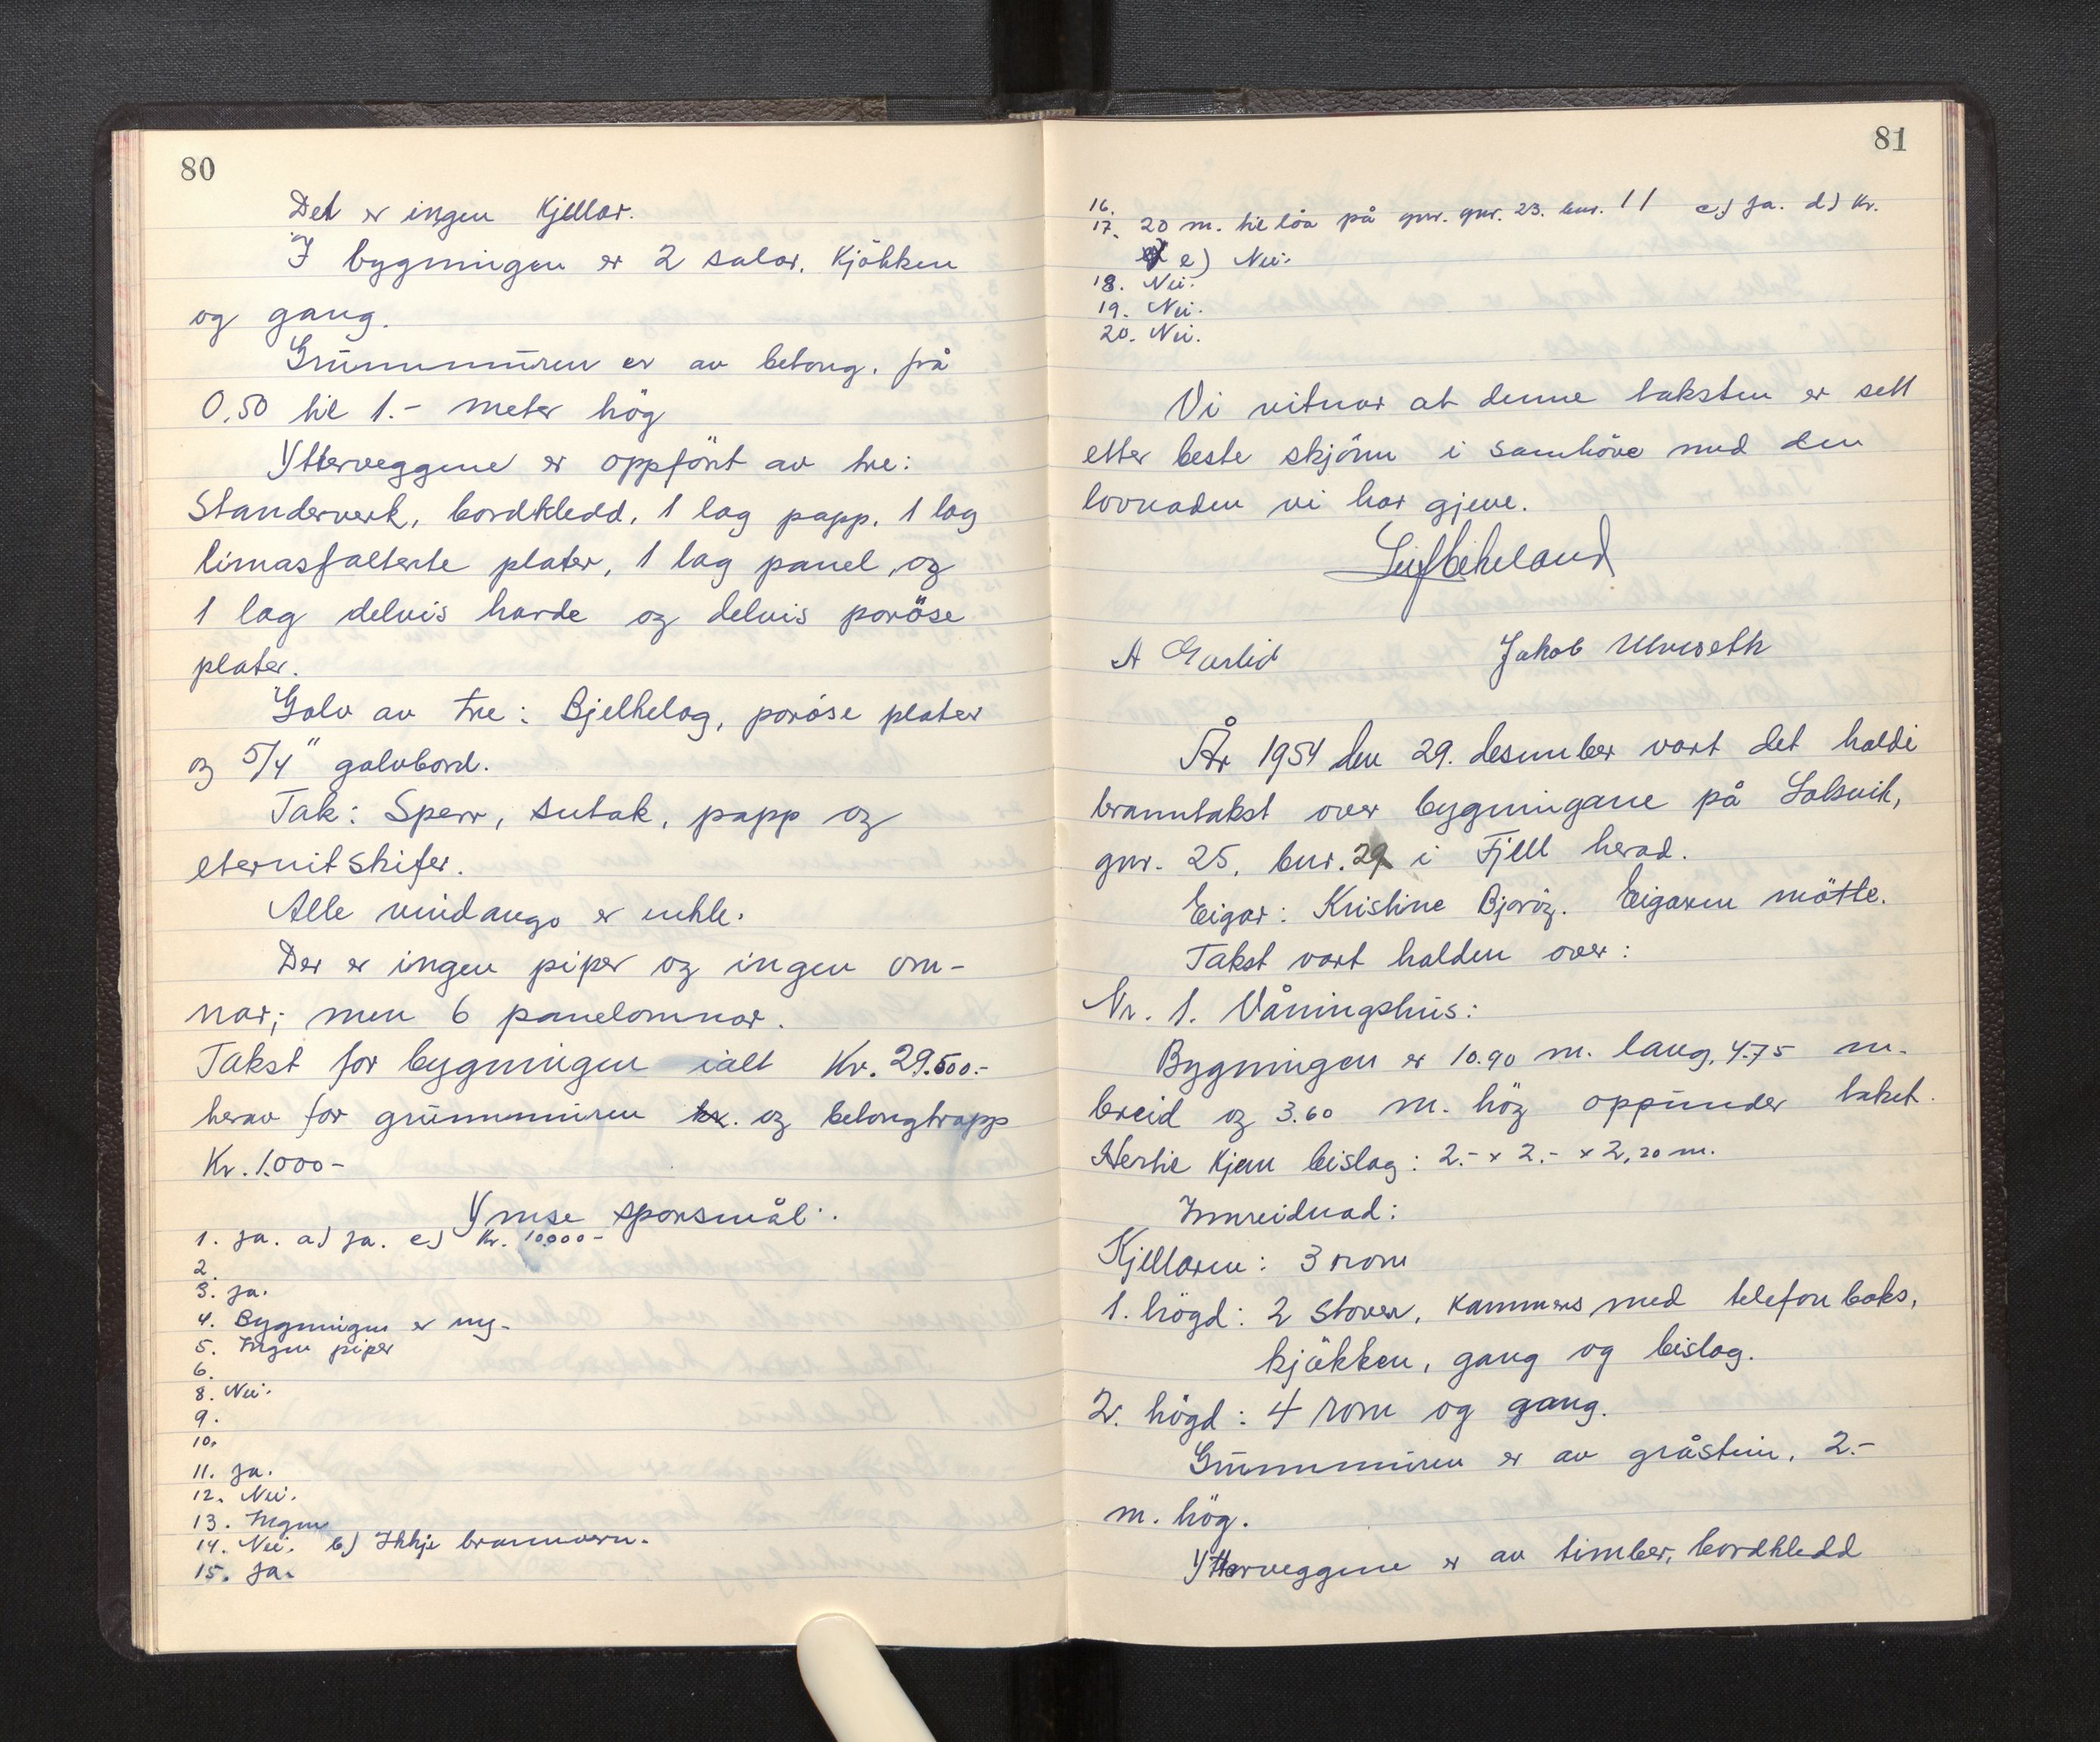 80
Det er ingen Kjellar.
I bygningen er 2 salar, Kjökken
og gang.
Grunnmuren er av betong, frå
0,50 til 1.- meter hög
Ytterveggene er oppfört av tre:
Standerverk, bordkledd, 1 lag papp, 1 lag
limasfalterte plater, 1 lag panel, og
1 lag delvis harde og delvis poröse
plater.
Golv av tre: Bjelkelag, poröse plater
og 5/4" golvbord.
Tak: Sperr, sutak, papp og
eternitskifer.
Alle vindaugo er enkle.
Der er ingen piper og ingen om-
nar; men 6 panelomnar.
Takst for bygningen ialt Kr. 29.500.-
herav for grunnmuren kr. og betongtrapp
Kr. 1.000-
Ymse sporsmål:
1. Ja. a) Ja. c) Kr. 10.000-
2.
3. Ja.
4. Bygningen er ny.
5. Ingen piper
6.
8. Nei.
9.
10.
11. Ja.
12. Nei.
13. Ingen
14. Nei. b) Ikkje brannvern.
15. Ja.
81
16.
17. 20 m. til löa på gnr. gnr. 23. bnr. 11 c) Ja. d) Kr.
e) Nei.
18. Nei.
19. Nei.
20. Nei.
Vi vitnar at denne taksten er sett
etter beste skjönn i samhöve med den
lovnaden vi har gjeve.
Leif Bekeland
A Garlid Jakob Ulveseth
År 1954 den 29. desember vart det haldi
branntakst over bygningane på Solsvik,
gnr. 25, bnr. 29 i Fjell herad.
Eigar: Kristine Bjoröy. Eigaren mötte.
Takst vart halden over:
Nr. 1. Våningshus:
Bygningen er 10.90 m. lang, 4.75 m.
breid og 3.60 m. hög oppunder taket.
Hertil kjem bislag: 2.- x 2.- x 2,20 m.
Innreidnad:
Kjellaren: 3 rom
1. högd: 2 stover, kammers med telefonboks,
kjökken, gang og bislag.
2. högd: 4 rom og gang.
Grunnmuren er av gråstein, 2.-
m. hög.
Ytterveggene er av timber, bordkledd